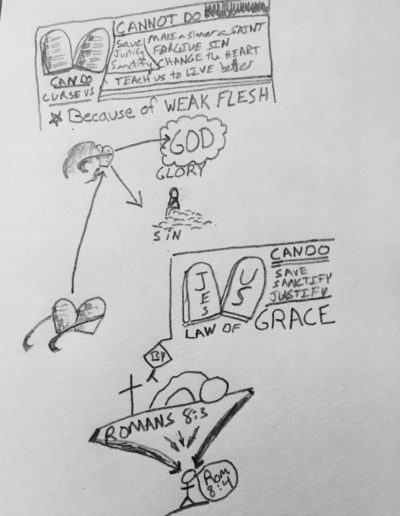 CANNOT DO
Save MAKE a sinner a SAINT
Justify FORGIVE SIN
Sanctify CHANGE the HEART
TEACH us to LIVE better
CAN DO
CURSE US
Because of WEAK FLESH
GOD
GLORY
SIN
CAN DO
SAVE
SANCTIFY
JUSTIFY
JES
US
LAW OF GRACE
BY
ROMANS 8:3
ROM
8:4